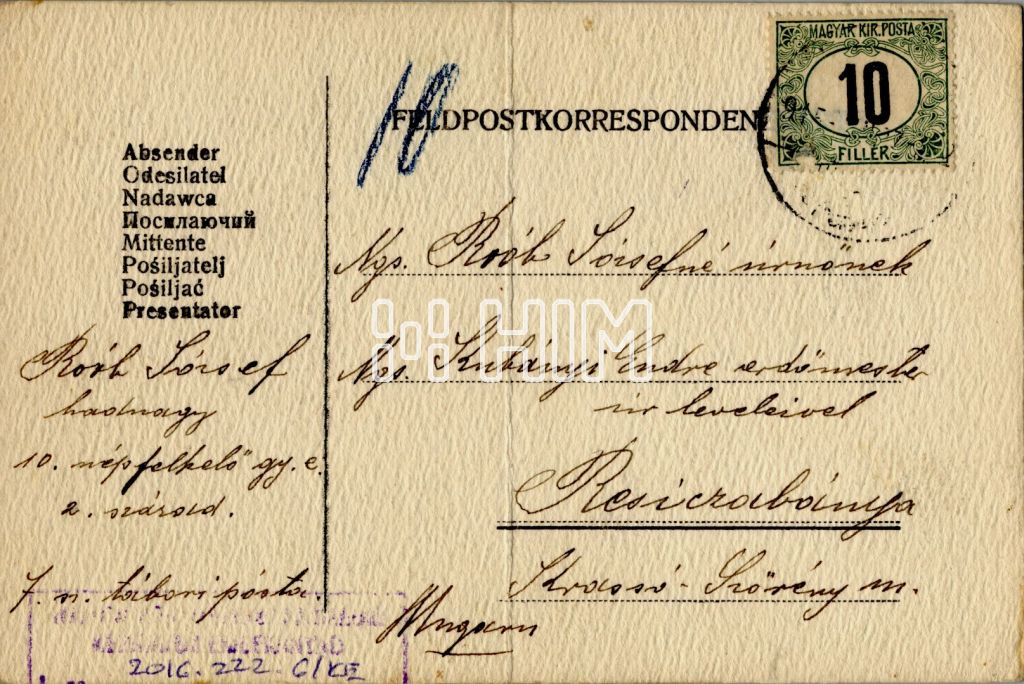 MAGYAR KIR. POSTA
10
FILLÉR
10
FELDPOSTKORRESPONDEN
Absender
Odesilatel
Nadawca
Посилаючий
Mittente
Pošiljatelj
Pošiljač
Presentator
Roób József
hadnagy
10. népfelkelő gy. e.
2. század.
7. sz. tábori pósta.
Ngs. Roób Józsefné úrnőnek
Ngs. Kubányi Endre erdőmester
úr leveleivel
Resiczabánya
Krassó-Szörény m.
Ungarn
HIM
2016.222.6/KE